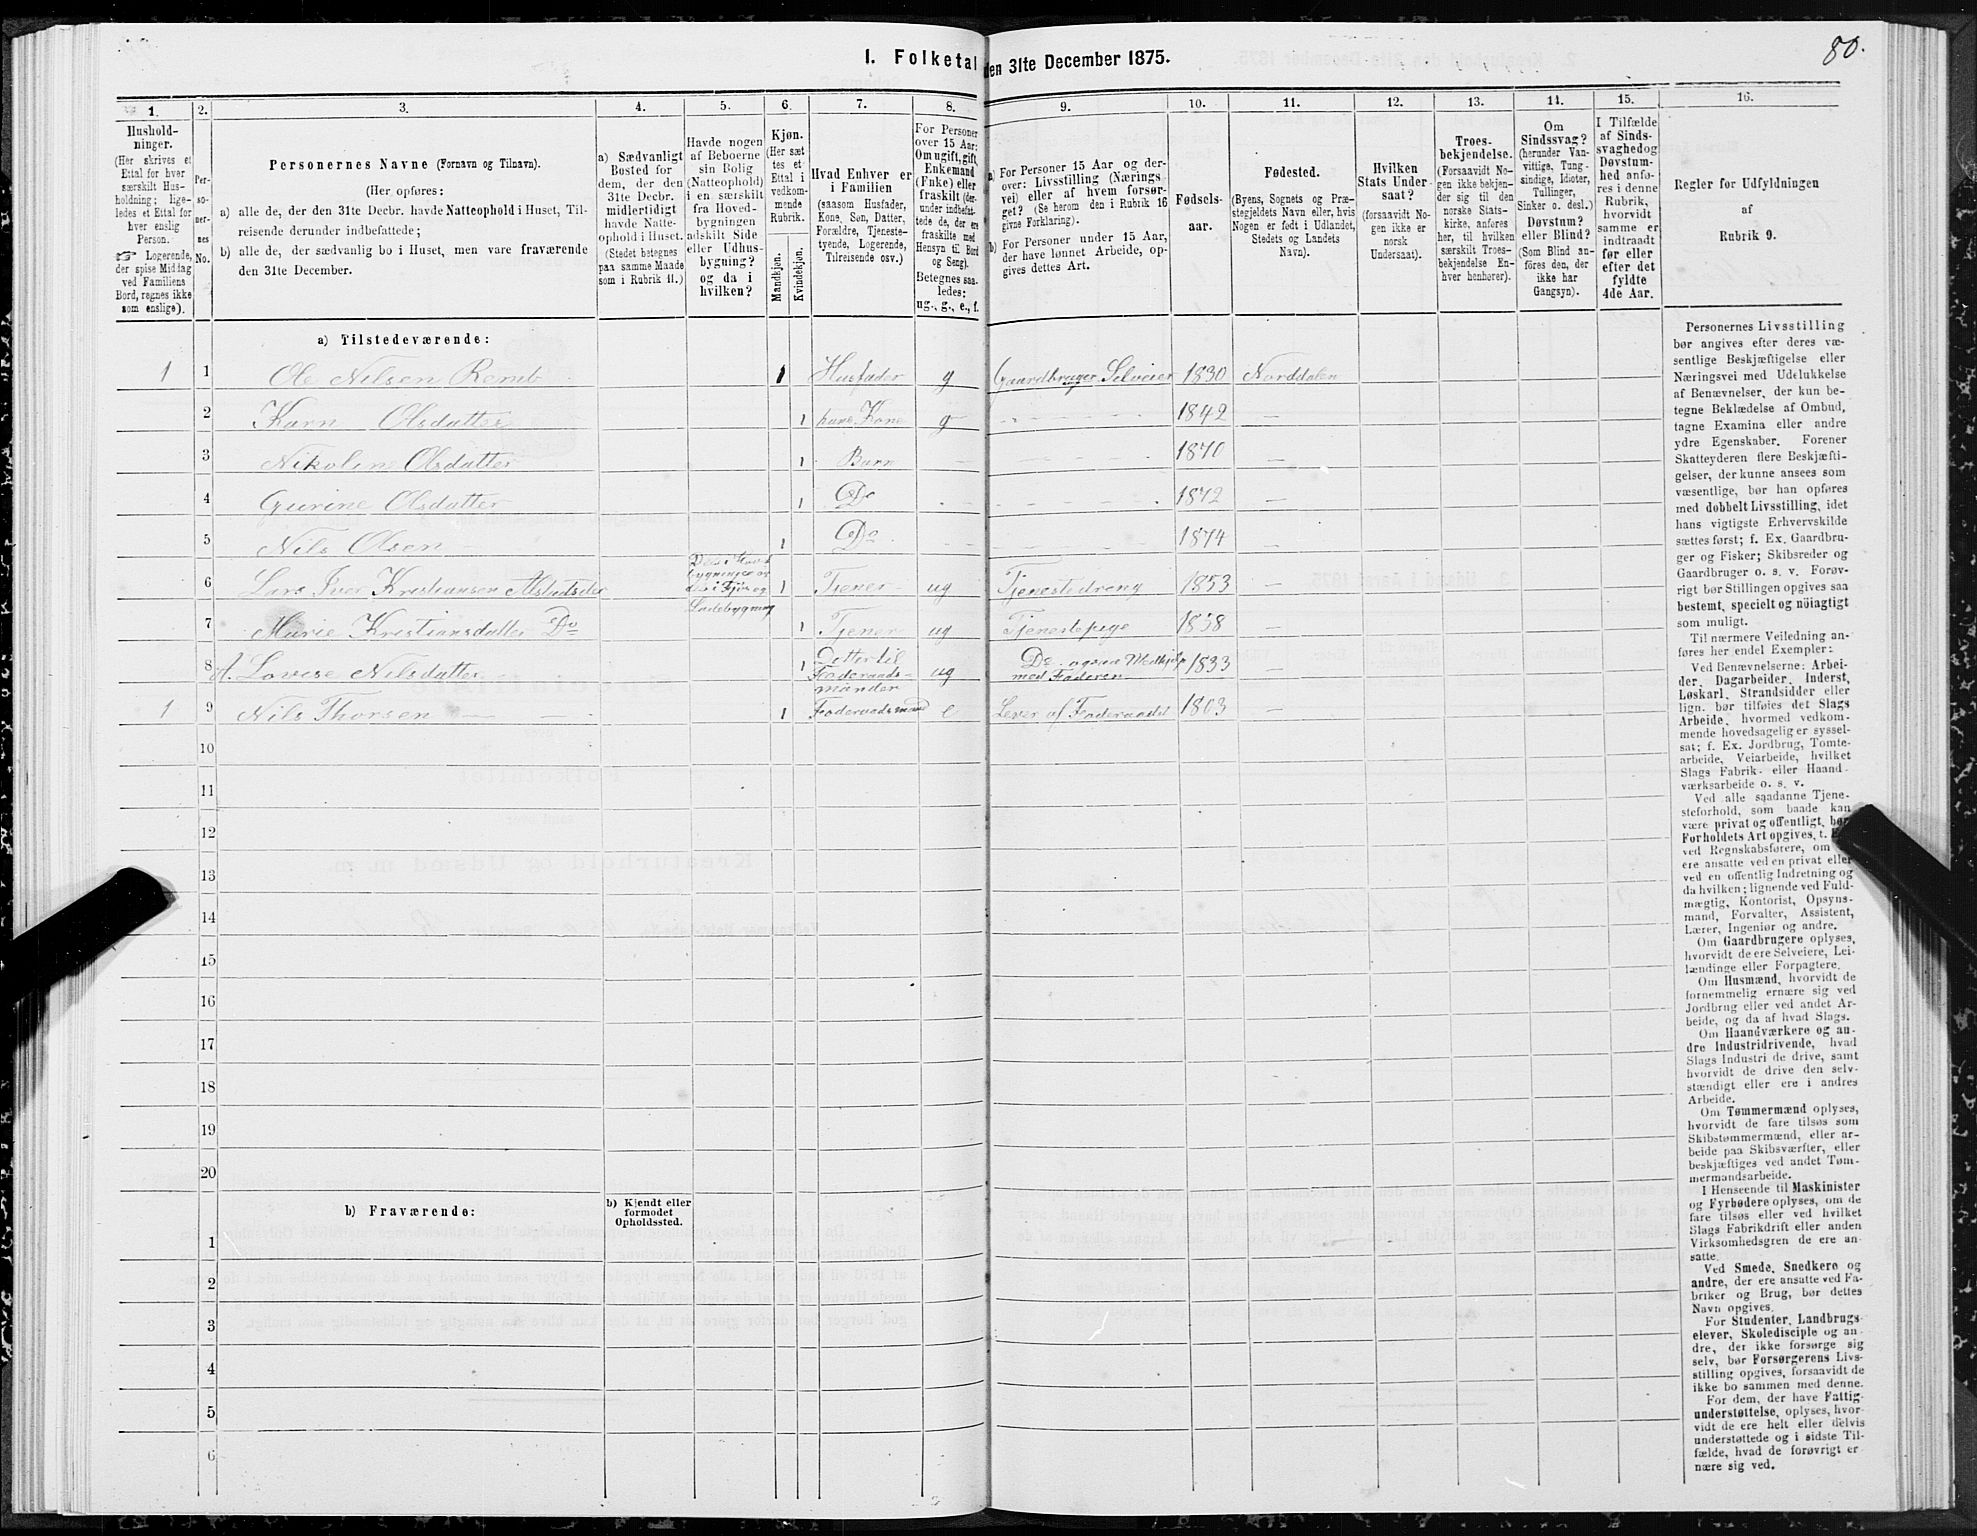 80.
I. Folketal den 31te December 1875.
1.
2.
3.
4.
5.
6.
7.
8.
9.
10.
11.
12.
13.
14.
15.
16.
Hushold-
ninger.
(Her skrives et
Ettal for hver
særskilt Hus-
holdning; lige-
ledes et Ettal for
hver enslig
Person.
☞ Logerende,
der spise Middag
ved Familiens
Bord, regnes ikke
som enslige).
Per-
so-
ner-
nes
No.
Personernes Navne (Fornavn og Tilnavn).
(Her opføres:
a) alle de, der den 31te Decbr. havde Natteophold i Huset, Til-
reisende derunder indbefattede;
b) alle de, der sædvanlig bo i Huset, men vare fraværende
den 31te December.
a) Sædvanligt
Bosted for
dem, der den
31te Decbr.
midlertidigt
havde Natte-
ophold i Huset.
(Stedet betegnes
paa samme Maade
som i Rubrik 11.)
Havde nogen
af Beboerne
sin Bolig
(Natteophold)
i en særskilt
fra Hoved-
bygningen
adskilt Side
eller Udhus-
bygning?
og da i
hvilken?
Kjøn.
(Her sæt-
tes et
Ettal i
vedkom-
mende
Rubrik.
Mandkjøn.
Kvindekjøn.
Hvad Enhver er
i Familien
(saasom Husfader,
Kone, Søn, Datter,
Forældre, Tjeneste-
tyende, Logerende,
Tilreisende osv.)
For Personer
over 15 Aar:
Om ugift, gift,
Enkemand
(Enke) eller
fraskilt (der-
under indbefat-
tede de, der ere
fraskilte med
Hensyn til Bord
og Seng).
Betegnes saa-
ledes:
ug., g., e., f.
a) For Personer 15 Aar og der-
over: Livsstilling (Nærings-
vei) eller af hvem forsør-
get? (Se herom den i Rubrik 16
givne Forklaring).
b) For Personer under 15 Aar,
der have lønnet Arbeide, op-
gives dettes Art.
Fødsels-
aar.
Fødested.
(Byens, Sognets og Præ-
stegjeldets Navn eller, hvis
Nogen er født i Udlandet,
Stedets og Landets
Navn).
Hvilken
Stats Under-
saat?
(forsaavidt No-
gen ikke er
norsk
Undersaat).
Troes-
bekjendelse.
(Forsaavidt No-
gen ikke bekjen-
der sig til den
norske Stats-
kirke, anføres
her, til hvilken
særskilt Troes-
bekjendelse En-
hver henhører).
Om
Sindssvag?
(herunder Van-
vittige, Tung-
sindige, Idioter,
Tullinger,
Sinker o. desl.)
Døvstum?
eller Blind?
(Som Blind an-
føres den, der
ikke har
Gangsyn).
I Tilfælde
af Sinds-
svaghed og
Døvstum-
hed anfø-
res i denne
Rubrik,
hvorvidt
samme er
indtraadt
før eller
efter det
fyldte
4de Aar.
Regler for Udfyldningen
af
Rubrik 9.
a) Tilstedeværende:
1 1 Ole Nilsen Remb 1 Husfader g Gaardbruger Selveier 1830 Norddalen
2 Karn Olsdatter 1 hans Kone g - 1842 —
3 Nikoline Olsdatter 1 Barn - 1870 —
4 Gurine Olsdatter 1 Do - 1872 —
5 Nils Olsen 1 Do - 1874 —
6 Lars Iver Kristiansen 1 Tjener ug Tjenestedreng 1853 —
7 Marie Kristiansdatter Do 1 Tjener ug Tjenestepige 1858 —
8 A. Lovise Nilsdatter 1 Datter til Foderaads-mander ug Do ogsaa Medhjelp med Faderen 1833 —
1 9 Nils Thorsen 1 Foderaadsmand e Lever af Foderaadet 1803 —
10
11
12
13
14
15
16
17
18
19
20
b) Fraværende:
b) Kjendt eller
formodet
Opholdssted.
1
2
3
4
5
6
Personernes Livsstilling
bør angives efter deres væ-
sentlige Beskjæftigelse eller
Næringsvei med Udelukkelse
af Benævnelser, der kun be-
tegne Beklædelse af Ombud,
tagne Examina eller andre
ydre Egenskaber. Forener
Skatteyderen flere Beskjæfti-
gelser, der kunne ansees som
væsentlige, bør han opføres
med dobbelt Livsstilling, idet
hans vigtigste Erhvervskilde
sættes først; f. Ex. Gaardbru-
ger og Fisker; Skibsreder og
Gaardbruger o. s. v. Forøv-
rigt bør Stillingen opgives saa
bestemt, specielt og nöiagtigt
som muligt.
Til nærmere Veiledning an-
føres her endel Exempler:
Ved Benævnelserne: Arbei-
der, Dagarbeider, Inderst,
Løskarl, Strandsidder eller
lign. bør tilføies det Slags
Arbeide, hvormed vedkom-
mende hovedsagelig er syssel-
sat; f. Ex. Jordbrug, Tomte-
arbeide, Veiarbeide, hvilket
Slags Fabrik- eller Haand-
værksarbeide o. s. v.
Ved alle saadanne Tjene-
steforhold, som baade kan
være privat og offentligt, bør
Forholdets Art opgives, t.
ved Regnskabsførere, om
ere ansatte ved en privat eller
ved en offentlig Indretning og
da hvilken; lignende ved Fuld-
mægtig, Kontorist, Opsyns-
mand, Forvalter, Assistent,
Lærer, Ingeniør og andre.
Om Gaardbrugere oplyses,
hvorvidt de ere Selveiere, Lei-
lændinge eller Forpagtere.
Om Husmænd, hvorvidt de
fornemmelig ernære sig ved
Jordbrug eller ved andet Ar-
beide, og da af hvad Slags.
Om Haandværkere og an-
dre Industridrivende, hvad
Slags Industri de drive, samt
hvorvidt de drive den selv-
stændigt eller ere i andres
Arbeide.
Om Tømmermænd oplyses,
hvorvidt de fare tilsøs som
Skibstømmermænd, eller ar-
beide paa Skibsværfter, eller
beskjæftiges ved andet Tøm-
mermandsarbeide.
I Henseende til Maskinister
og Fyrbødere oplyses, om de
fare tilsøs eller ved hvilket
Slags Fabrikdrift eller anden
Virksomhedsgren de ere an-
satte.
Ved Smede, Snedkere og
andre, der ere ansatte ved Fa-
briker og Brug, bør dettes
Navn opgives.
For Studenter, Landbrugs-
elever, Skoledisciple og an-
dre, der ikke forsørge sig
selv, bør Forsørgerens Livs-
stilling opgives, forsaavidt de
ikke bo sammen med denne.
For dem, der have Fattig-
understøttelse, oplyses, hvor-
vidt de ere helt eller delvis
understøttede og i sidste Til-
fælde, hvad de forøvrigt er-
nære sig ved.